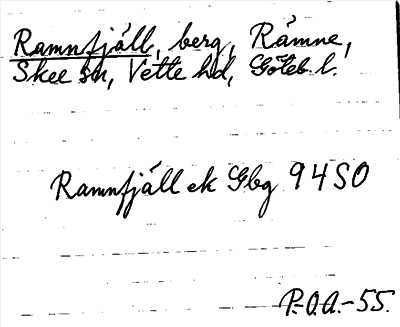 Ramnfjäll, berg, Rämne,
Skee sn, Vette hd, Göteb l.
Ramnfjäll ek Gbg 94SO
P.O.A.-55.